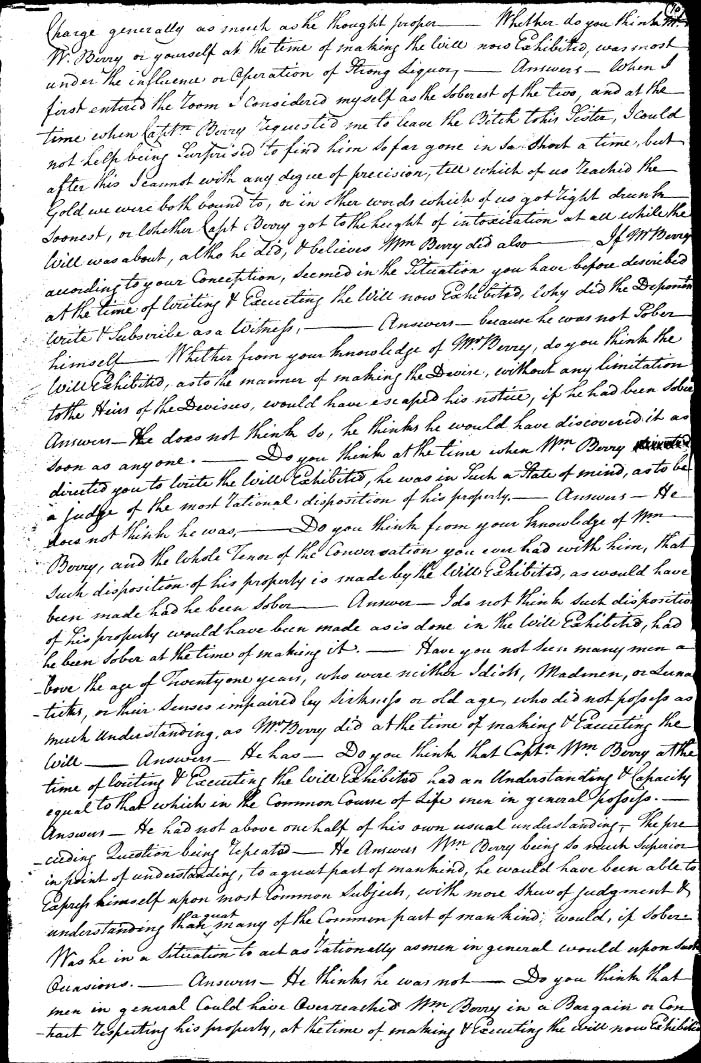 70
Charge generally as much as he thought proper — Whether do you think Mr
W. Berry or yourself at the time of making the Will now Exhibited, was most
under the influence or Operation of Strong Liquor, — Answers — When I
first entered the Room I considered myself as the Soberest of the two, and at the
time when Captn Berry requested me to leave the Bitch to his Sister, I could
not help being Surprised to find him so far gone in so Short a time, but
after this I cannot with any degee of precision, tell which of us reached the
Goal we were both bound to, or in other words which of us got right drunk
Soonest, or Whether Capt Berry got to the height of intoxication at all while the
Will was about, altho he did, & believes Wm Berry did also — If Mr Berry
according to your Conception, seemed in the Situation you have before described
at the time of Writing & Executing the Will now Exhibited, Why did the Deponent
Write & Subscribe as a Witness, — Answers — because he was not Sober
himself — Whether from your knowledge of Mr Berry, do you think the
Will Exhibited, as to the manner of making the Devise, without any limitation
to the Heirs of the Devisees, would have escaped his notice, if he had been Sober
Answers — He does not think So, he thinks he would have discovered it as
soon as any one. — Do you think at the time when Wm Berry
directed you to Write the Will Exhibited, he was in Such a State of mind, as to be
a judge of the most rational disposition of his property. — Answers — He
does not think he was, — Do you think from your knowledge of Wm
Berry, and the Whole Tenor of the Conversation you ever had with him, that
such disposition of his property is made by the Will Exhibited, as would have
been made had he been Sober — Answer — I do not think such disposition
of his property would have been made as is done in the Will Exhibited, had
he been Sober at the time of making it. — Have you not seen many men a-
-bove the age of Twenty one years, who were neither Idiots, Madmen, or Luna
-ticks, or their Senses impaired by Sickness or old age, who did not possess as
much Understanding, as Mr Berry did at the time of making & Executing the
Will — Answers — He has — Do you think that Captn Wm Berry at the
time of Writing & Executing the Will Exhibited had an Understanding & Capacity
equal to that which in the Common Course of Life men in general possess. —
Answers — He had not above one half of his own usual understanding — The pre
-ceeding Question being repeated — He Answers Wm Berry being so much Superior
in point of understanding, to a great part of mankind, he would have been able to
Express himself upon most Common Subjects, with more Shew of judgment &
understanding than a great many of the Common part of mankind, would, if Sober —
Was he in a Situation to act as rationally as men in general would upon Such
Occasions. — Answers — He thinks he was not — Do you think that
men in general Could have Overreached Wm Berry in a Bargain or Con
-tract respecting his property, at the time of making & Executing the Will now Exhibited